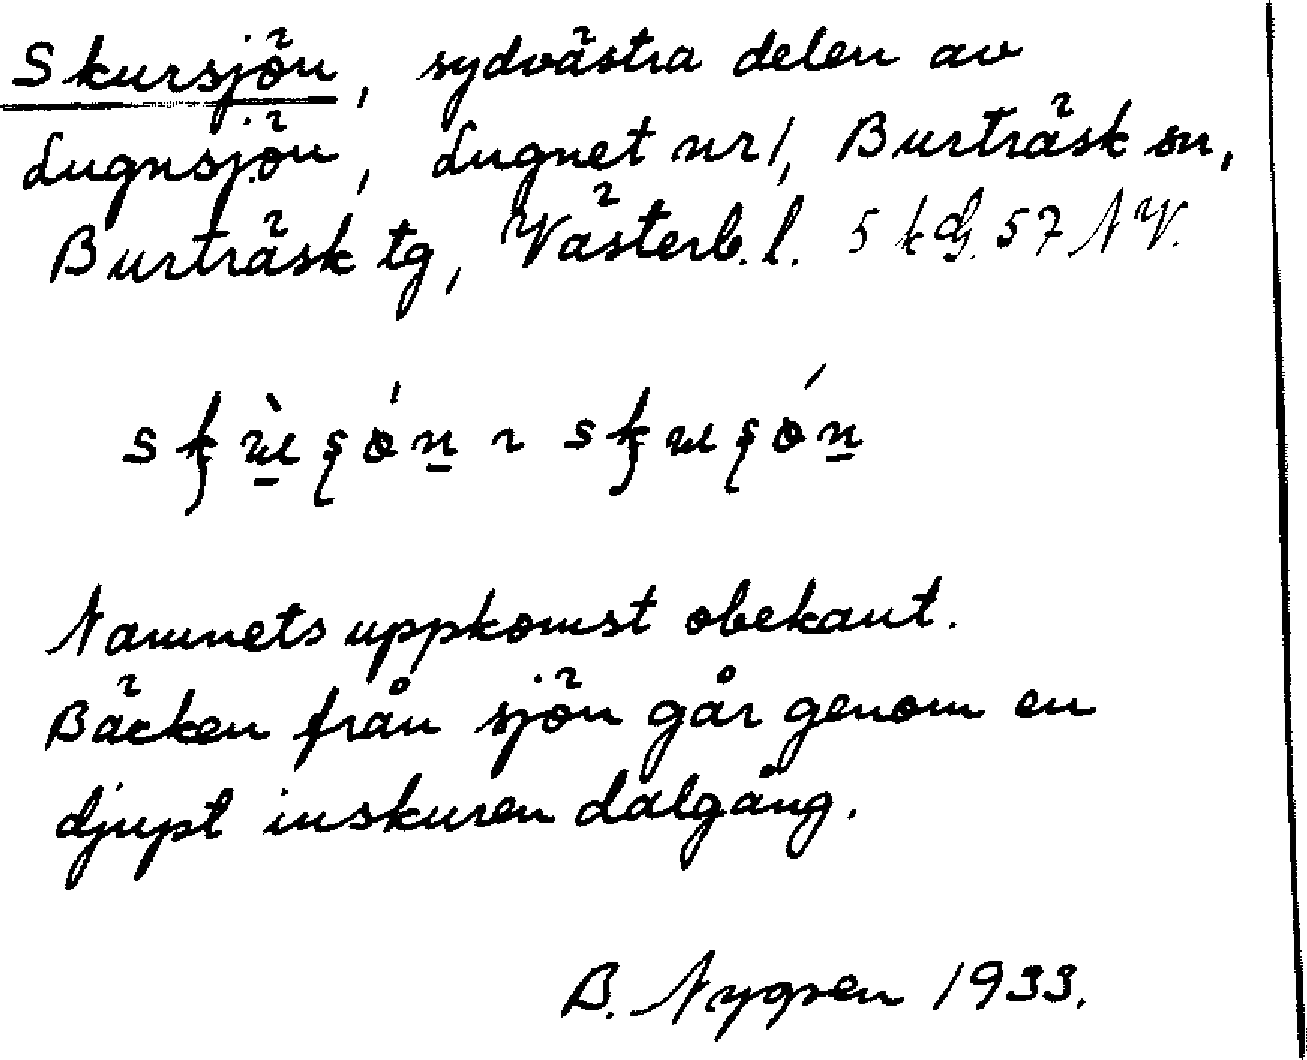 Skursjön, sydvästra delen av
Lugnsjön, Lugnet nr 1, Burträsk sn,
Burträsk tg, Västerb. l. 5 kG. 57 NV.
Namnets uppkomst obekant.
Bäcken från sjön går genom en
djupt inskuren dalgång.
B. Nygren 1933.